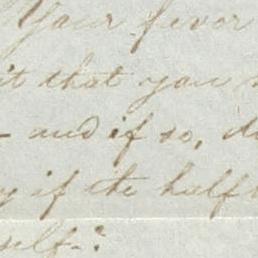 Your favor
it that you
- and if so, d
y if the half
self-?